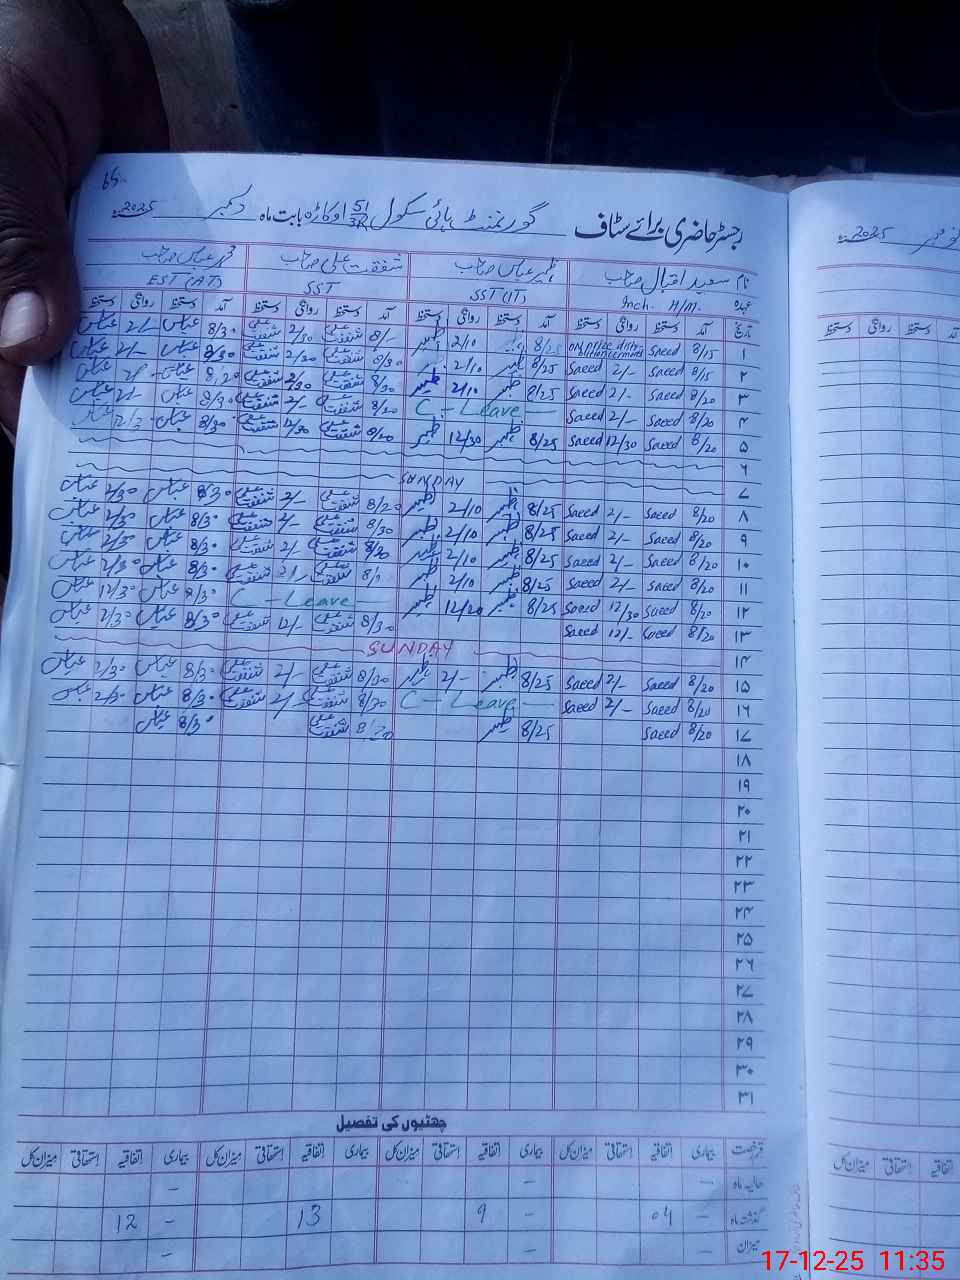 65
رجسٹر حاضری برائے سٹاف گورنمنٹ ہائی سکول 51/3R اوکاڑہ بابت ماہ دسمبر 2025
نام سعید اقبال صاحب ظہیر عباس صاحب شفقت علی صاحب عباس صاحب
عہدہ Inch. H/M. SST (IT) SST EST (AT)
تاریخ آمد دستخط روانگی دستخط آمد دستخط روانگی دستخط آمد دستخط روانگی دستخط آمد دستخط روانگی دستخط
۱ 8/15 Saeed 8/25 2/10 ظہیر 8/- شفقت علی 2/30 شفقت علی 8/30 عباس 2/- عباس
۲ 8/15 Saeed 2/- Saeed 8/25 ظہیر 2/10 8/30 شفقت علی 2/30 شفقت علی 8/30 عباس 2/- عباس
۳ 8/20 Saeed 2/- Saeed 8/25 ظہیر 2/10 ظہیر 8/30 شفقت علی 2/30 شفقت علی 8/20 عباس عباس
۴ 8/20 Saeed 2/- Saeed C - Leave 8/20 شفقت علی 2/- شفقت علی 8/30 عباس 2/- عباس
۵ 8/20 Saeed 12/30 Saeed 8/25 ظہیر 12/30 ظہیر 8/20 شفقت علی 12/30 شفقت علی 8/30 عباس عباس
۶
۷ SUNDAY
۸ 8/20 Saeed 2/- Saeed 8/25 ظہیر 2/10 ظہیر 8/20 شفقت علی 2/- شفقت علی 8/30 عباس 2/30 عباس
۹ 8/20 Saeed 2/- Saeed 8/25 ظہیر 2/10 ظہیر 8/30 شفقت علی 2/- شفقت علی 8/30 عباس 2/30 عباس
۱۰ 8/20 Saeed 2/- Saeed 8/25 ظہیر 2/10 ظہیر شفقت علی 2/- شفقت علی 8/30 عباس 2/30 عباس
۱۱ 8/20 Saeed 2/- Saeed 8/25 ظہیر 2/10 ظہیر شفقت علی 2/- شفقت علی 8/30 عباس 2/30 عباس
۱۲ 8/20 Saeed 12/30 Saeed 8/25 ظہیر 12/20 ظہیر C - Leave 8/30 عباس 12/30 عباس
۱۳ 8/20 Saeed 12/- Saeed 8/30 شفقت علی 12/- شفقت علی 8/30 عباس 2/30 عباس
۱۴ SUNDAY
۱۵ 8/20 Saeed 2/- Saeed 8/25 ظہیر 2/- ظہیر 8/30 شفقت علی 2/- شفقت علی 8/30 عباس 2/30 عباس
۱۶ 8/20 Saeed 2/- Saeed C - Leave 8/30 شفقت علی 2/- شفقت علی 8/30 عباس 2/30 عباس
۱۷ 8/20 Saeed 8/25 ظہیر 8/30 شفقت علی 8/30 عباس
۱۸
۱۹
۲۰
۲۱
۲۲
۲۳
۲۴
۲۵
۲۶
۲۷
۲۸
۲۹
۳۰
۳۱
چھٹیوں کی تفصیل
قسم رخصت بیماری اتفاقیہ استحقاقی میزان کل بیماری اتفاقیہ استحقاقی میزان کل بیماری اتفاقیہ استحقاقی میزان کل بیماری اتفاقیہ استحقاقی میزان کل
حالیہ ماہ - - -
گذشتہ ماہ - 04 - 9 13 - 12
میزان - - -
2025
آمد دستخط روانگی دستخط
اتفاقیہ استحقاقی میزان کل
17-12-25 11:35